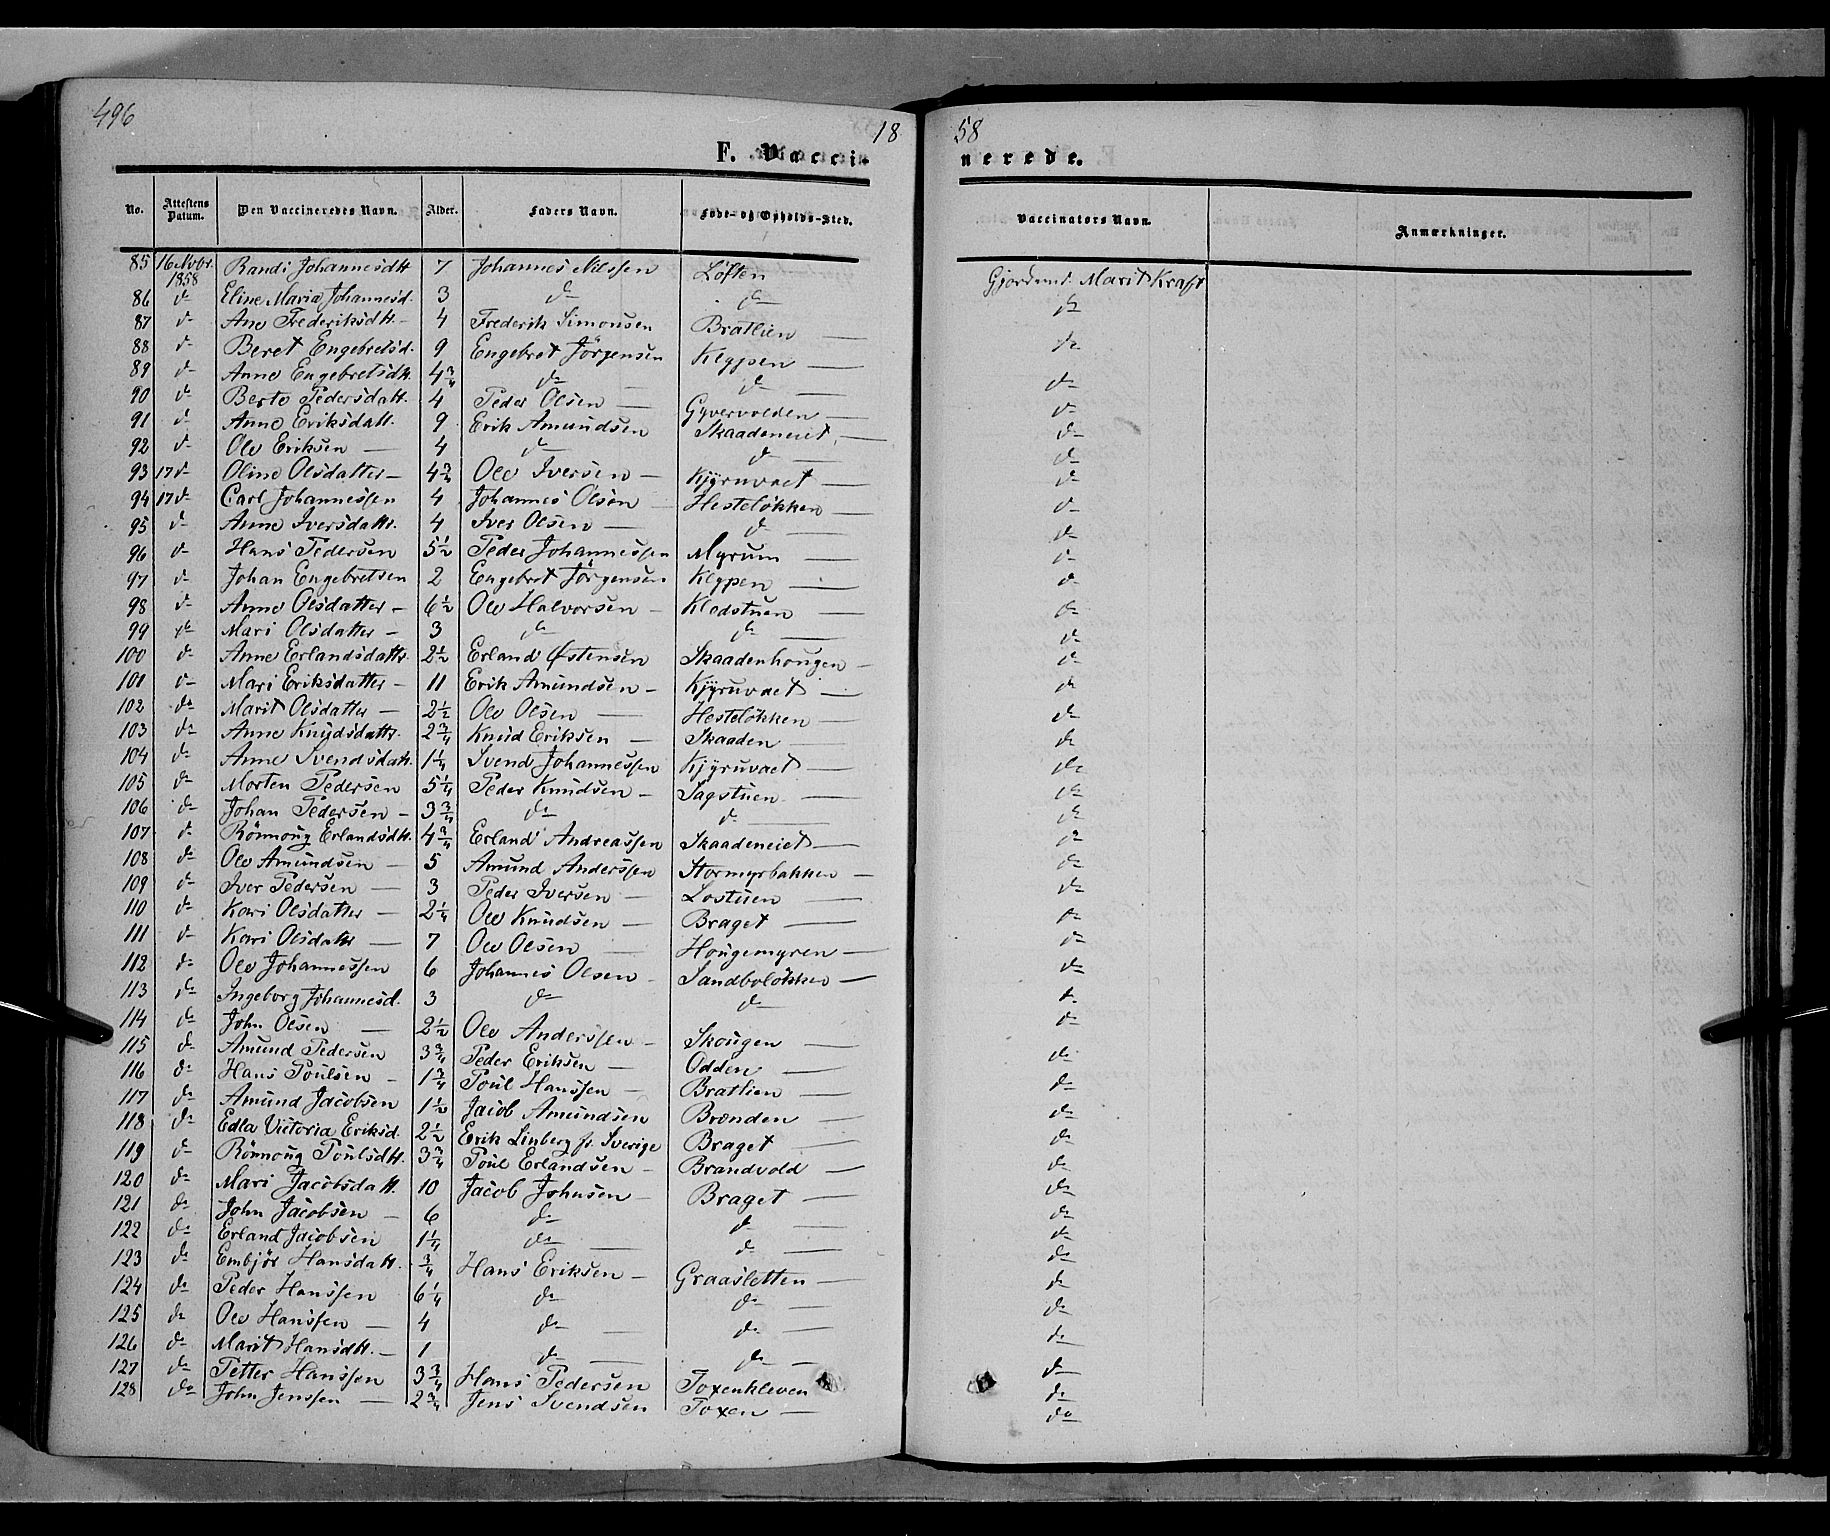 496
18 58
F. Vacci- nerede.
No. Attestens Datum. Den Vaccineredes Navn. Alder. Faders Navn. Føde- og Opholds-Sted. Vaccinators Navn. Anmærkninger.
85 16 Novbr. 1858 Randi Johannesdtt 7 Johannes Nilssen Løften Gjordemd. Marit Kraft
86 do Eline Maria Johannesd. 3 do do do
87 do Ane Frederiksdtt. 4 Frederik Simonsen Bratlien — do
88 do Beret Engebretsd. 9 Engebret Jörgensen Kleppen —
89 do Anne Engebretsdtt. 4 3/4 do do do
90 do Berte Pedersdatt. 4 Peder Olsen — Gyvervolden — do
91 do Anne Eriksdatt. 9 Erik Amundsen Skaadeneiet — do
92 do Ole Eriksen — 4 do do — do
93 17 do Oline Olsdatter — 4 3/4 Ole Iversen — Kjÿruvaet — do
94 17 do Carl Johannessen 4 Johannes Olsen Hestelökken — do
95 do Anne Iversdattr. 4 Iver Olsen — do do
96 do Hans Pedersen 5 1/2 Peder Johannessen Myrum — do
97 do Johan Engebretsen 2 Engebret Jörgensen Kleppen — do
98 do Anne Olsdatter — 6 1/2 Ole Halvorsen — Kledstuen — do
99 do Mari Olsdatter — 3 do do — do
100 do Anne Erlandsdattr. 2 1/2 Erland Østensen Skaadenhougen — do
101 do Mari Eriksdatter — 11 Erik Amundsen — Kjÿruvaet — do
102 do Marit Olsdatter — 2 1/2 Ole Olsen — Hestelökken — do
103 do Anne Knudsdattr. 2 3/4 Knud Eriksen — Skaaden — do
104 do Anne Svendsdatt. 1 1/4 Svend Johannessen Kjÿruvaet — do
105 do Morten Pedersen 5 1/4 Peder Knudsen — Sagstuen — do
106 do Johan Pedersen — 3 3/4 do do — do
107 do Rönnoug Erlandsdtt. 4 3/4 Erland Andreassen Skaadeneiet — do
108 do Ole Amundsen — 5 Amund Anderssen Stormyrbakken — do
109 do Iver Pedersen — 3 Peder Iversen — Lostuen — do
110 do Kari Olsdatter — 2 1/4 Ole Knudsen — Braget — do
111 do Kari Olsdattr — 7 Ole Olsen — Hougemyren — do
112 do Ole Johannessen 6 Johannes Olsen — Sandbolökken — do
113 do Ingeborg Johannesd. 3 do do do
114 do John Olsen — 2 1/2 Ole Anderssen — Skougen — do
115 do Amund Pedersen 3 3/4 Peder Eriksen — Odden — do
116 do Hans Poulsen — 1 3/4 Poul Hanssen — Bratlien — do
117 do Amund Jacobsen 1 1/2 Jacob Amundsen Brænden — do
118 do Edla Victoria Eriksd. 2 1/2 Erik Linberg fr. Sverige Braget — do
119 do Rönnoug Poulsdtt. 3 3/4 Poul Erlandsen — Brandvold — do
120 do Mari Jacobsdatt. 10 Jacob Johnsen — Braget — do
121 do John Jacobsen — 6 do do — do
122 do Erland Jacobsen 1 1/4 do — do — do
123 do Embjör Hansdatt. 3/4 Hans Eriksen — Graasletten — do
124 do Peder Hanssen 6 1/4 do do — do
125 do Ole Hanssen — 4 do — do — do
126 do Marit Hansdtt. — 1 do — do — do
127 do Petter Hanssen 3 3/4 Hans Pedersen Toxenkleven do
128 do John Jenssen — 2 3/4 Jens Svendsen Toxen — do